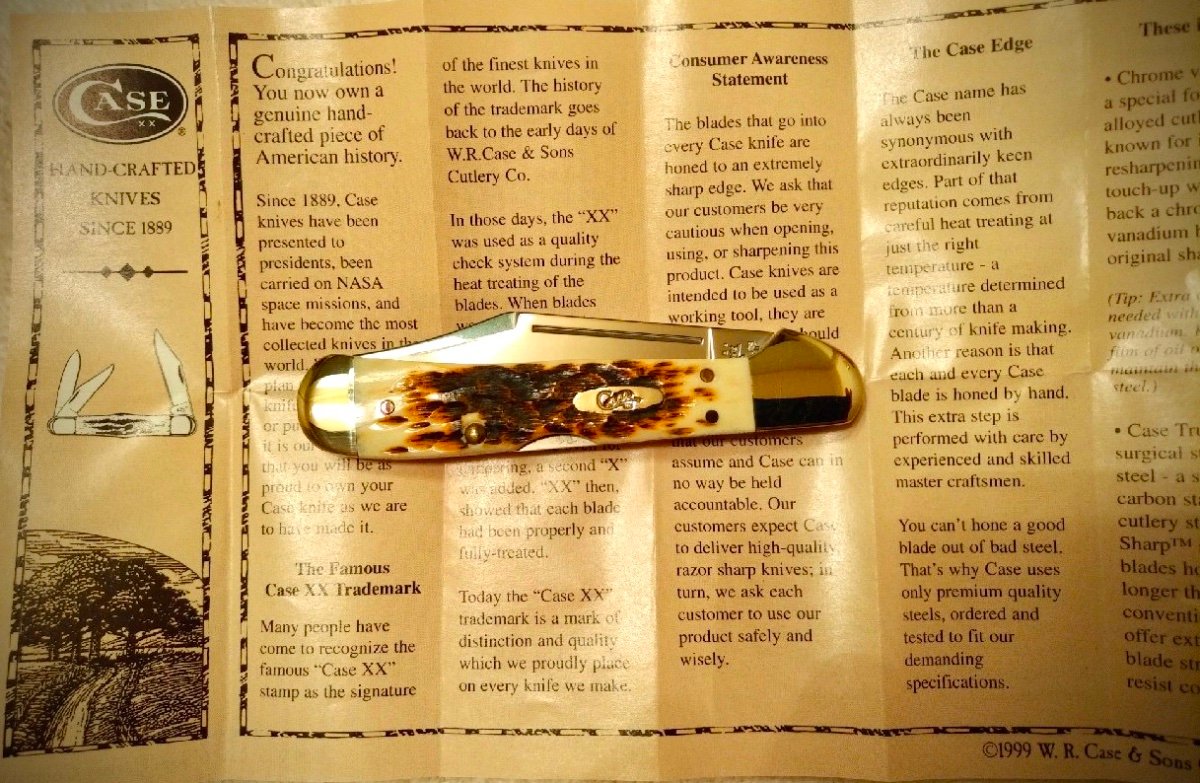 CASE
XX
®
HAND-CRAFTED
KNIVES
SINCE 1889
Congratulations!
You now own a
genuine hand-
crafted piece of
American history.
Since 1889, Case
knives have been
presented to
presidents, been
carried on NASA
space missions, and
have become the most
collected knives in the
world.
plan
or
it is
that you will be as
proud to own your
Case knife as we are
to have made it.
The Famous
Case XX Trademark
Many people have
come to recognize the
famous “Case XX”
stamp as the signature
of the finest knives in
the world. The history
of the trademark goes
back to the early days of
W.R.Case & Sons
Cutlery Co.
In those days, the “XX”
was used as a quality
check system during the
heat treating of the
blades. When blades
a second “X”
was added. “XX” then,
showed that each blade
had been properly and
fully-treated.
Today the “Case XX”
trademark is a mark of
distinction and quality
which we proudly place
on every knife we make.
Consumer Awareness
Statement
The blades that go into
every Case knife are
honed to an extremely
sharp edge. We ask that
our customers be very
cautious when opening,
using, or sharpening this
product. Case knives are
intended to be used as a
working tool, they are
that our customers
assume and Case can in
no way be held
accountable. Our
customers expect Case
to deliver high-quality,
razor sharp knives; in
turn, we ask each
customer to use our
product safely and
wisely.
The Case Edge
The Case name has
always been
synonymous with
extraordinarily keen
edges. Part of that
reputation comes from
careful heat treating at
just the right
temperature - a
temperature determined
from more than a
century of knife making.
Another reason is that
each and every Case
blade is honed by hand.
This extra step is
performed with care by
experienced and skilled
master craftsmen.
You can’t hone a good
blade out of bad steel.
That’s why Case uses
only premium quality
steels, ordered and
tested to fit our
demanding
specifications.
These
• Chrome
a special
alloyed
known for
touch-up
back a
vanadium
original
(Tip: Extra
needed
vanadium.
film of oil
maintain
steel.)
• Case
surgical
steel - a
carbon
cutlery
Sharp™
blades
longer
offer
blade
resist
Case
©1999 W. R. Case & Sons